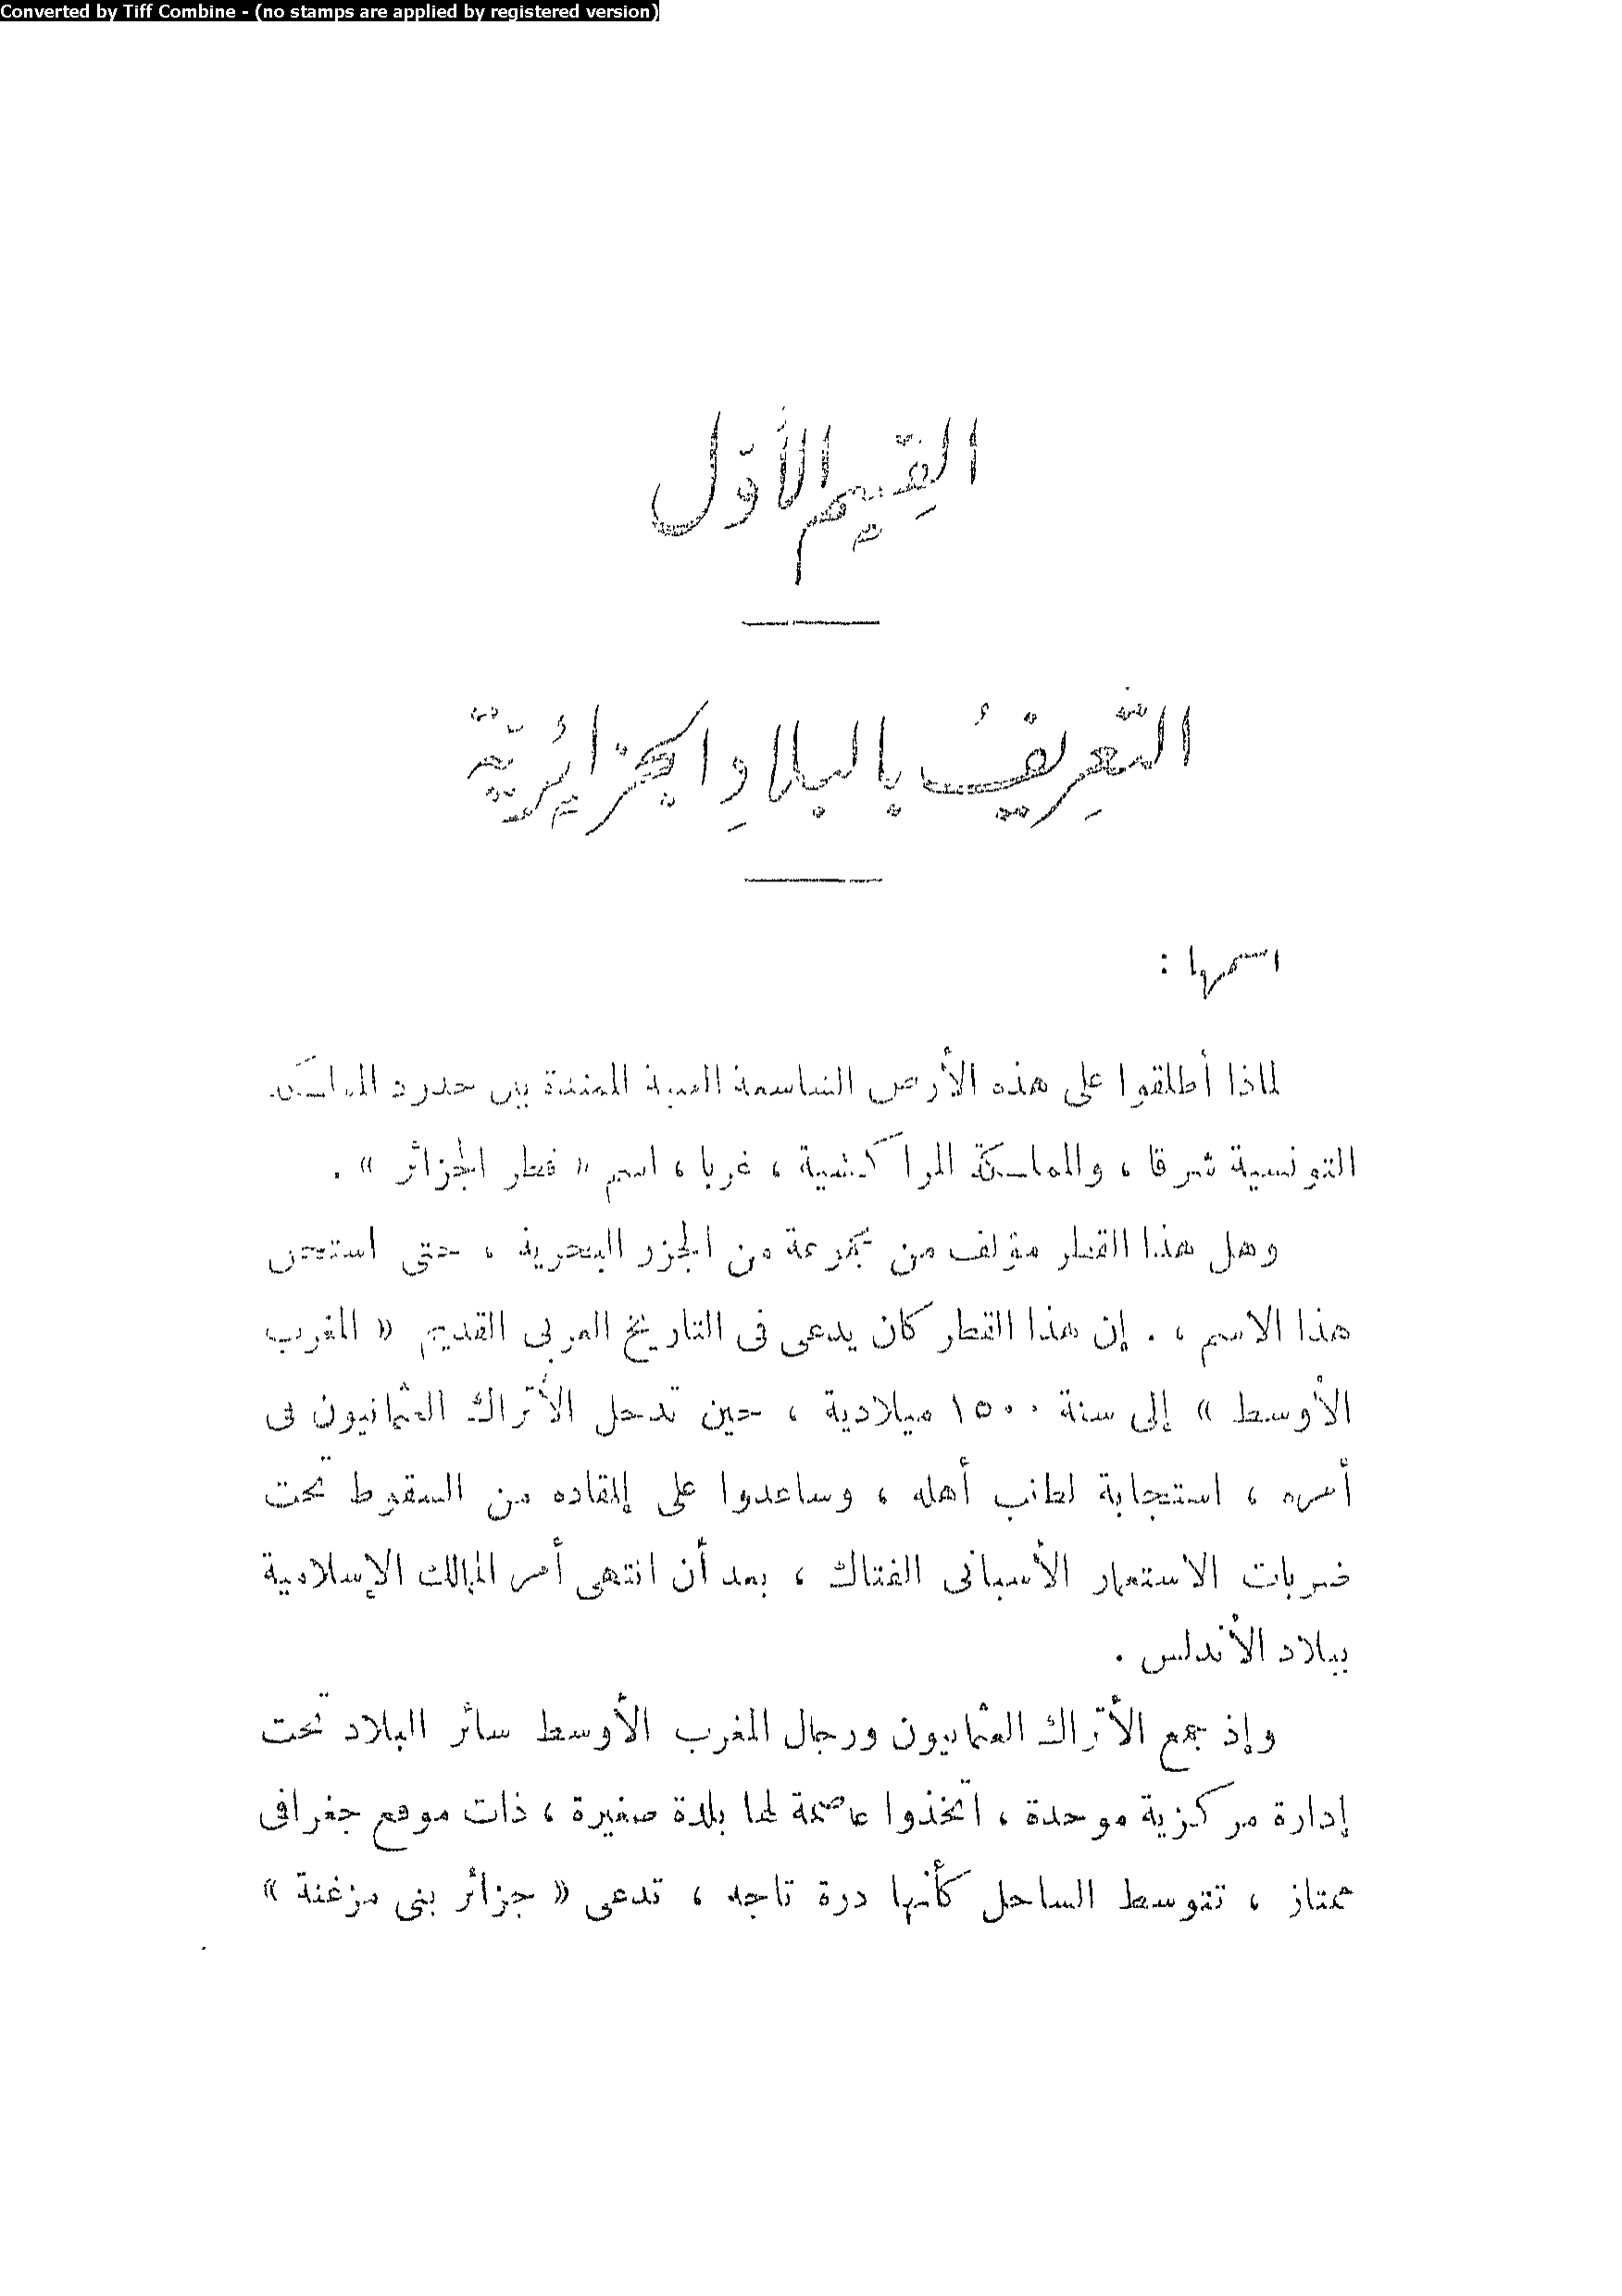 Converted by Tiff Combine - (no stamps are applied by registered version)
القِسِم الأوّل
التّعِريفُ بالبلادِ الجزائِريّة
اسمها :
لماذا أطلقوا على هذه الأرض الشاسعة الممتدة بين حدود المملكة
التونسية شرقا ، والمملكة المراكشية ، غربا ، اسم « قطر الجزائر » .
وهل هذا القطر مؤلف من مجموعة من الجزر البحرية ، حتى استحق
هذا الاسم ، . إن هذا القطر كان يدعى فى التاريخ العربى القديم « المغرب
الأوسط » إلى سنة ١٥٠٠ ميلادية ، حين تدخل الأتراك العثمانيون فى
أمره ، استجابة لطلب أهله ، وساعدوا على إنقاذه من السقوط تحت
ضربات الاستعمار الأسبانى الفتاك ، بعد أن انتهى أمر الممالك الإسلامية
ببلاد الأندلس .
وإذ جمع الأتراك العثمانيون ورجال المغرب الأوسط سائر البلاد تحت
إدارة مركزية موحدة ، اتخذوا عاصمة لها بلدة صغيرة ، ذات موقع جغرافى
ممتاز ، تتوسط الساحل كأنها درة تاجه ، تدعى « جزائر بنى مزغنة »